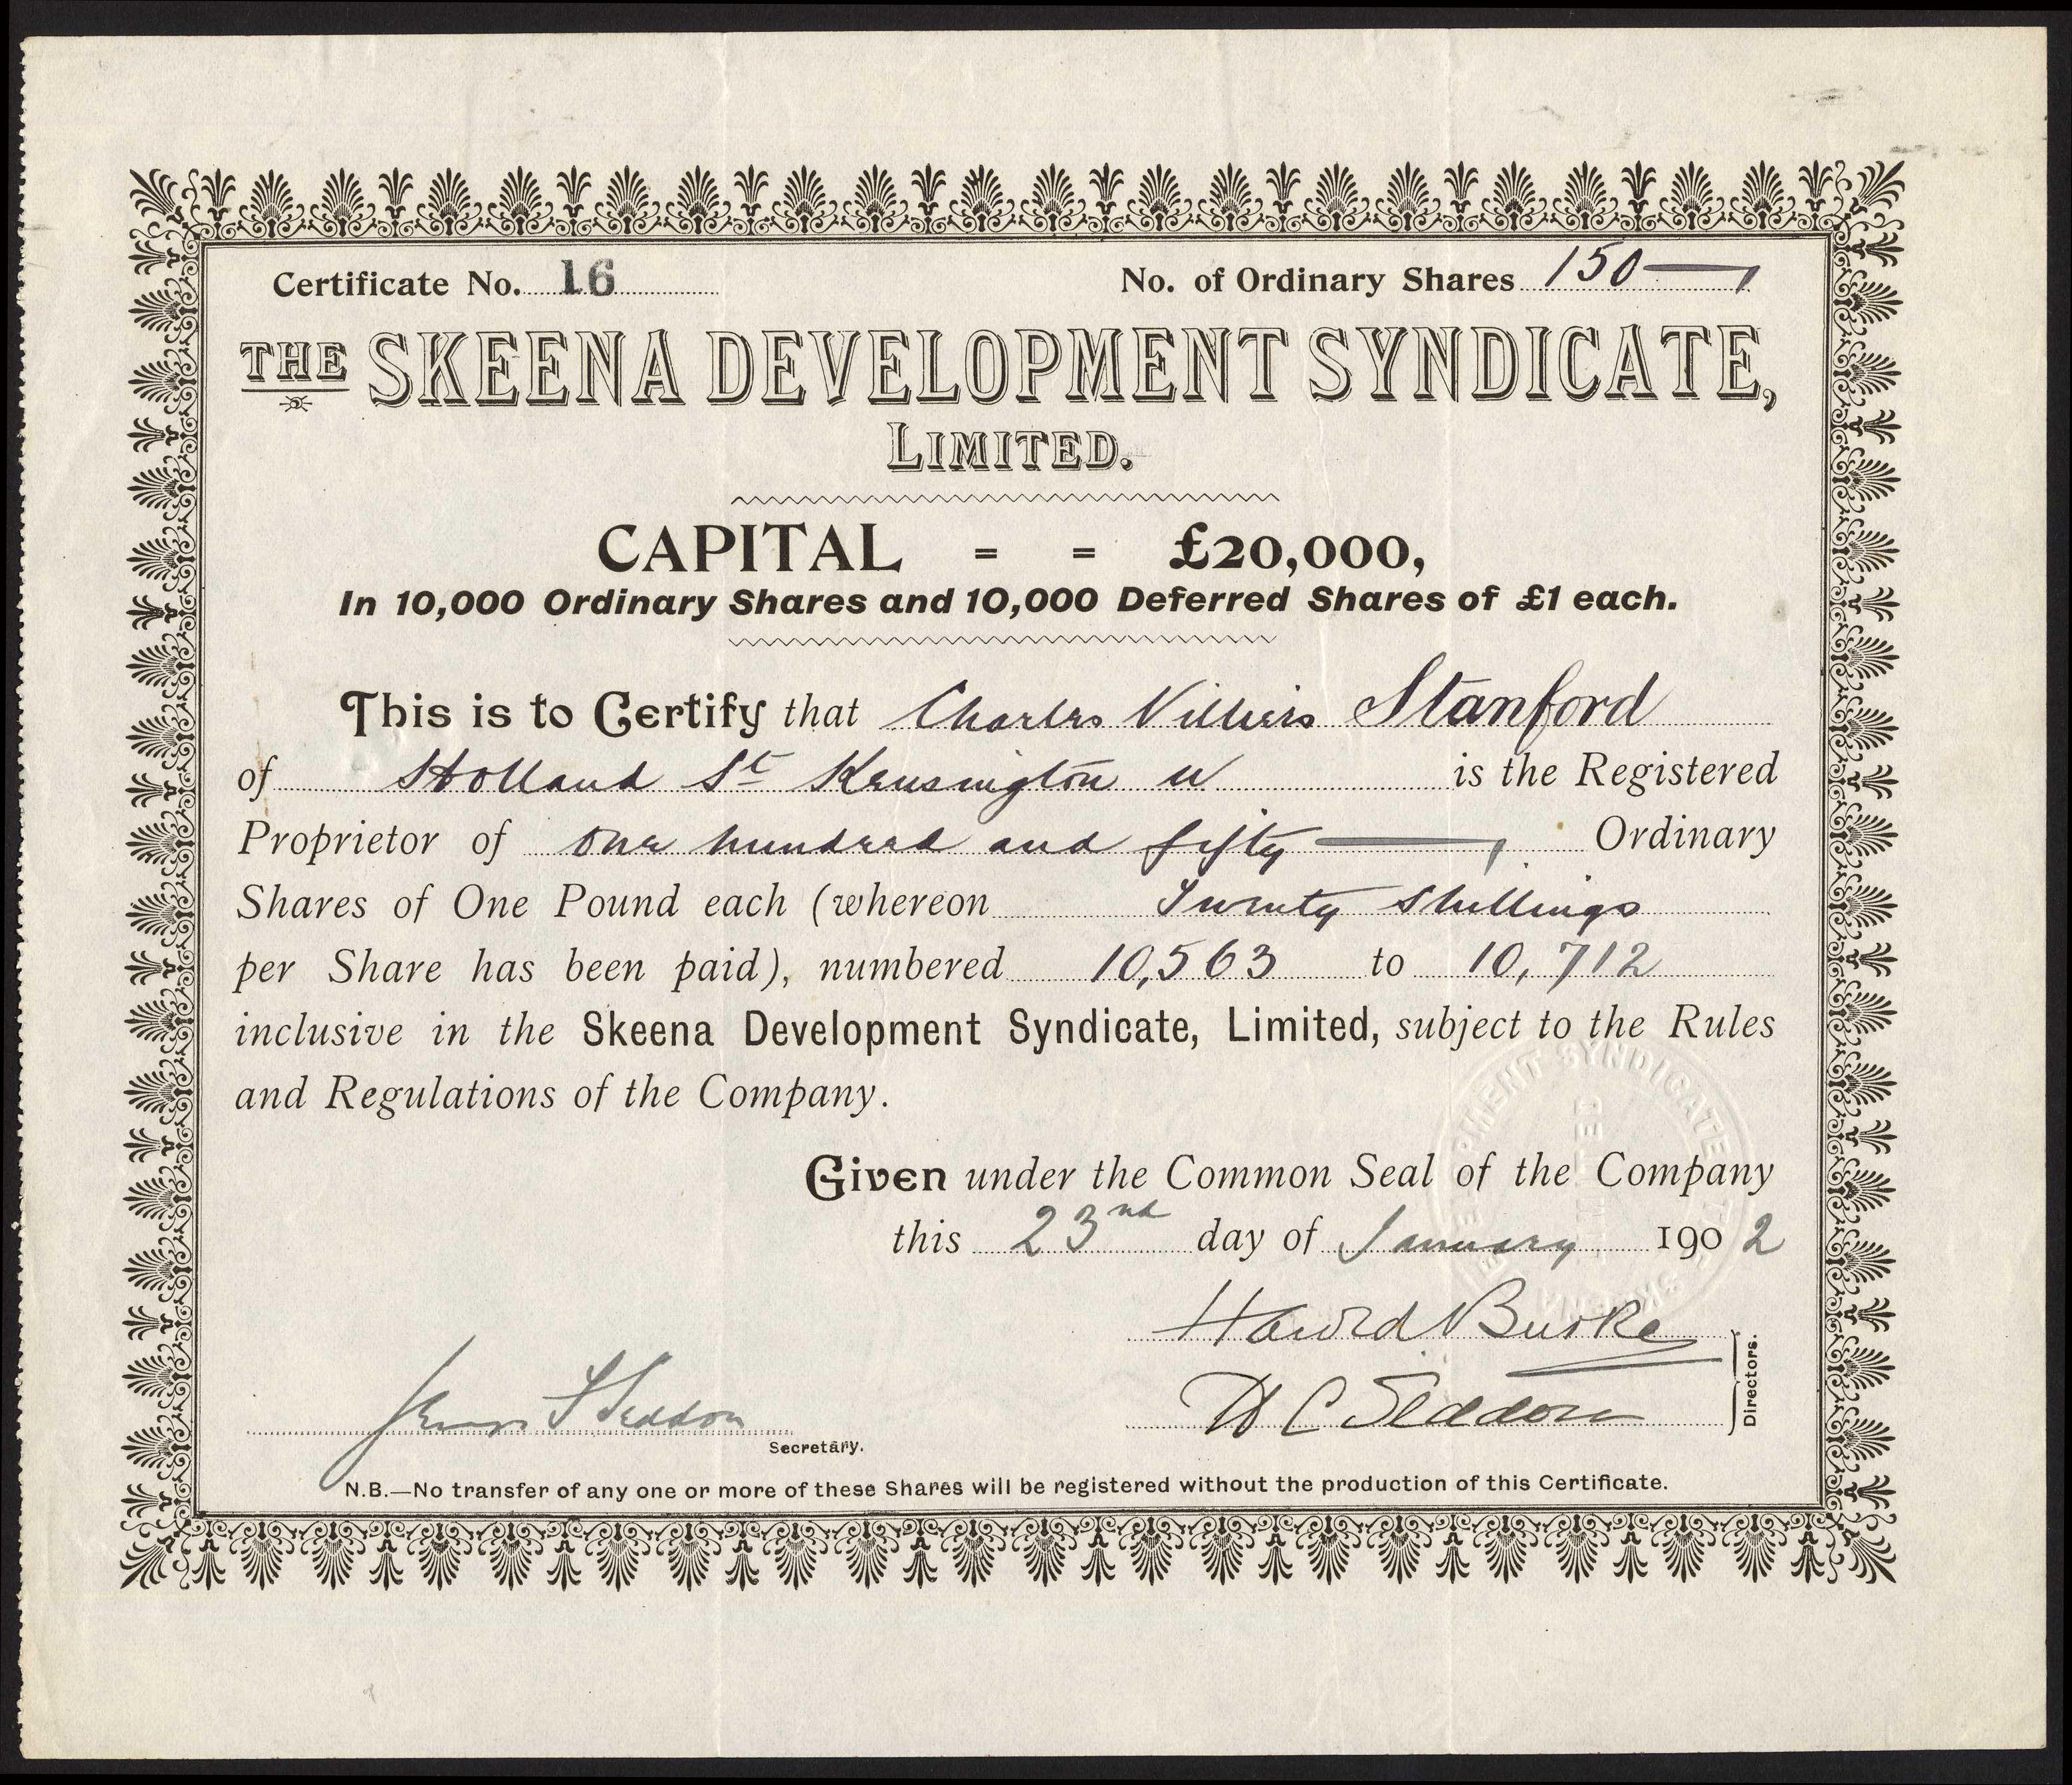 Certificate No. 16
No. of Ordinary Shares 150
THE SKEENA DEVELOPMENT SYNDICATE,
LIMITED.
CAPITAL = = £20,000,
In 10,000 Ordinary Shares and 10,000 Deferred Shares of £1 each.
This is to Certify that Charles Villiers Stanford
of Holland St Kensington W is the Registered
Proprietor of one hundred and fifty Ordinary
Shares of One Pound each (whereon Twenty Shillings
per Share has been paid), numbered 10,563 to 10,712
inclusive in the Skeena Development Syndicate, Limited, subject to the Rules
and Regulations of the Company.
Given under the Common Seal of the Company
this 23nd day of January 1902
Harold Burke
Seddon
Directors.
Seddon
Secretary.
N.B.—No transfer of any one or more of these Shares will be registered without the production of this Certificate.